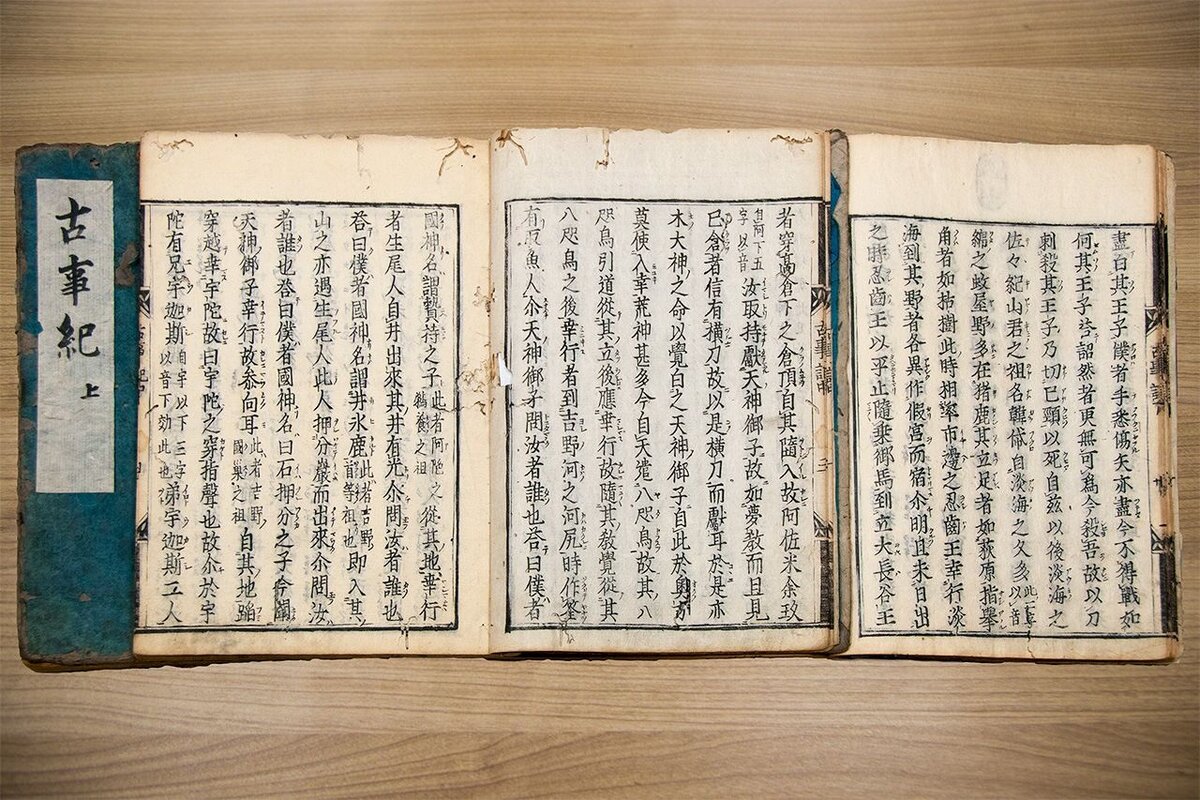 盡曰其王子僕者手悉傷矢亦盡今不得戰如
何其王子荅詔然者更無可爲今殺吾故以刀
刺殺其王子乃切己頸以死自兹以後淡海之
佐々紀山君之祖名韓帒自淡海之久多此二字以音
綿之蚊屋野多在猪鹿其立足者如荻原指擧
角者如枯樹此時相率市邊之忍齒王幸行淡
海到其野者各異作假宮而宿尒明旦未日出
之時忍齒王以平止隨乘御馬到立大長谷王
者穿高倉下之倉頂自其墮入故阿佐米余玖
自阿下五字以音汝取持獻天神御子故如夢教而旦見
己倉者信有横刀故以是横刀而獻耳於是亦
木大神之命以覺白之天神御子自此於奥方
莫使入幸荒神甚多今自天遣八咫烏故其八
咫烏引道從其立後應幸行故隨其教覺從其
八咫烏之後幸行者到吉野河之河尻時作筌
有取魚人尒天神御子問汝者誰也荅曰僕者
國神名謂贄持之子此者阿陀之鵜養之祖從其地幸行
者生尾人自井出來其井有光尒問汝者誰也
荅曰僕者國神名謂井氷鹿此者吉野首等祖也即入其
山之亦遇生尾人此人押分巖而出來尒問汝
者誰也荅曰僕者國神名曰石押分之子今聞
天神御子幸行故叅向耳此者吉野國巢之祖自其地蹈
穿越幸宇陀故曰宇陀之穿指聲也故尒於宇
陀有兄宇迦斯自宇以下三字以音下效此也弟宇迦斯二人
古事紀上